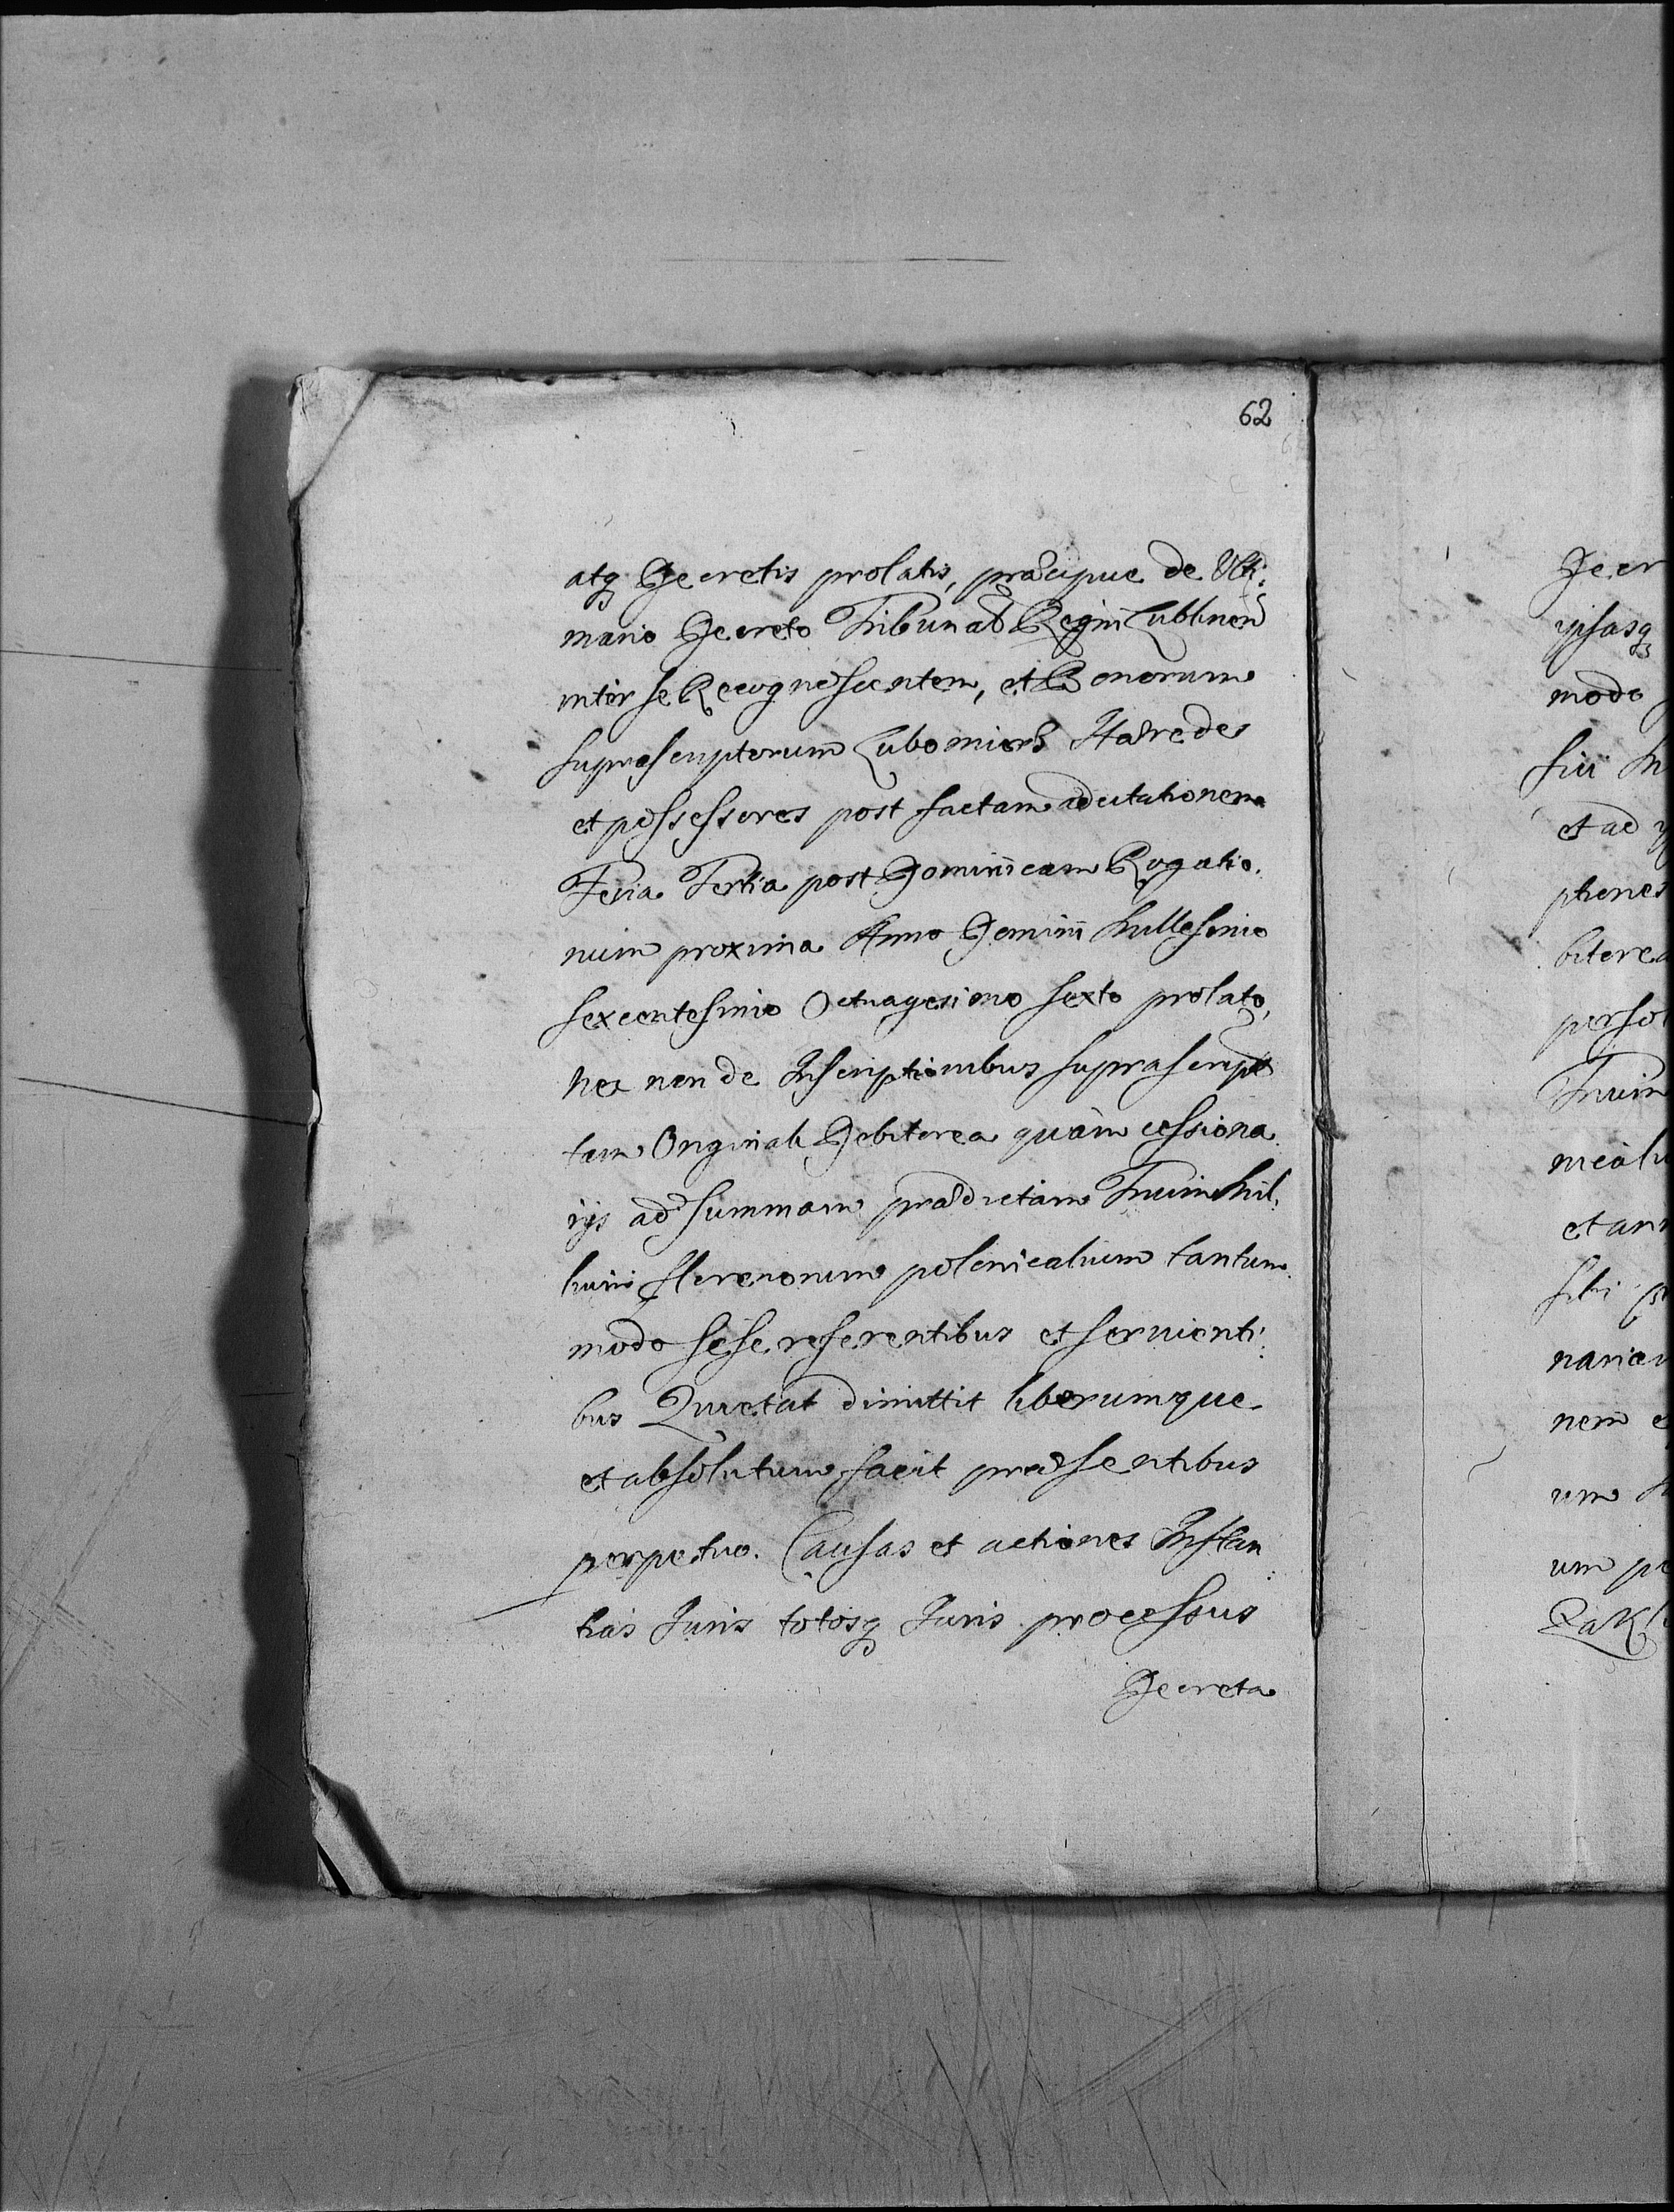 62
atq Decretis prolatis, præcipue de Ulti:
mario Decreto Tribunal Regni Lublinen
inter se Recognoscentem, et Bonorum
suprascriptorum Lubomierz Hæredes
et possessores post factam adcitationem
Feria Tertia post Dominicam Rogatio.
num proxima Anno Domini Millesimo
Sexcentesimo Octuagesimo sexto prolato,
nec non de Inscriptionibus suprascript
tam Originali Debitorea quàm cessiona
rijs ad summam prædictam Trium Mil:
lium florenorum polonicalium tantum
modo sese referentibus et servienti:
bus Quietat dimittit liberumque
et absolutum facit præsentibus
perpetuo. Causas et actiones Instan
tias Juris totosq Juris processus
Decreta
Decr
ipsasq
modo
sui
et ad
ptiones
bitorea
persol
Trium
nicaliu
et ann
sibi
nariam
nem e
um
um pr